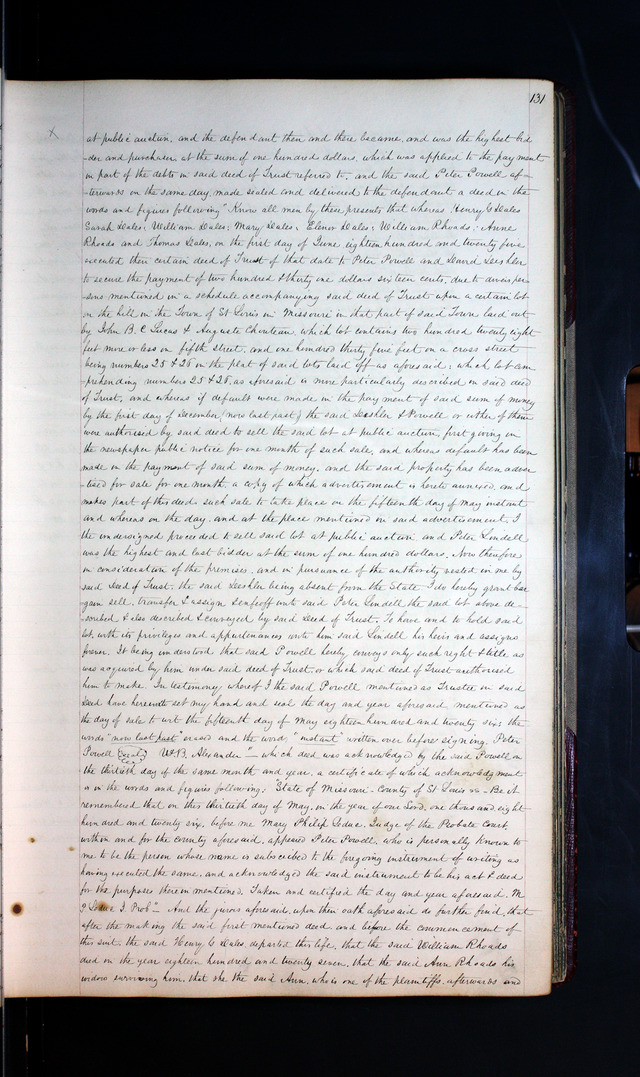 131
X
at public auction, and the defendant then and there became, and was the highest bid
-der and purchaser, at the sum of one hundred dollars, which was applied to the payment
in part of the debts in said deed of Trust referred to, and the said Peter Powell af-
-terwards on the same day, made sealed and delivered to the defendant a deed in the
words and figures following "Know all men by these presents that whereas Henry G Dales
Sarah Dales, William Dales, Mary Dales, Elenor Dales, William Rhoads, Anne
Rhoads and Thomas Dales, on the first day of June eighteen hundred and twenty five
executed their certain deed of Trust of that date to Peter Powell and David Deshler
to secure the payment of two hundred & thirty one dollars sixteen cents, due to divers per-
-sons mentioned in a schedule accompanying said deed of Trust upon a certain lot
on the hill in the Town of St Louis in Missouri in that part of said Town laid out
by John B. C Lucas & Auguste Chouteau, which lot contains two hundred twenty eight
feet more or less on fifth street, and one hundred thirty five feet on a cross street
being numbers 25 & 26 on the plat of said lots laid off as aforesaid; which lot com
prehending numbers 25 & 26, as aforesaid is more particularly described in said deed
of Trust, and whereas if default were made in the payment of said sum of money
by the first day of December (now last past) the said Deshler & Powell or either of them
were authorised by said deed to sell the said lot at public auction, first giving in
the newspaper public notice for one month of such sale, and whereas default has been
made in the payment of said sum of money, and the said property has been adver
-tised for sale for one month, a copy of which advertisement is hereto annexed, and
makes part of this deed such sale to take place on the fifteenth day of May instant
and whereas on the day, and at the place mentioned in said advertisement, I
the undersigned proceeded to sell said lot at public auction and Peter Lindell
was the highest and last bidder at the sum of one hundred dollars. Now therefore
in consideration of the premises, and in pursuance of the authority vested in me by
said deed of Trust, the said Deshler being absent from the State, I do hereby grant bar
gain sell, transfer & assign & enfeoff unto said Peter Lindell the said lot above de-
-scribed, & also described & conveyed by said Deed of Trust, To have and to hold said
lot, with its privileges and appurtenances unto him said Lindell his heirs and assigns
forever. It being understood that said Powell hereby conveys only such right & title as
was acquired by him under said deed of Trust, or which said deed of Trust authorised
him to make. In testimony whereof I the said Powell mentioned as Trustee in said
deed have hereunto set my hand and seal the day and year aforesaid, mentioned as
the day of sale to wit the fifteenth day of May eighteen hundred and twenty six; the
words "now last past" erased and the word, "instant" written over before signing. Peter
Powell (seal) W.B. Alexander" – which deed was acknowledged by the said Powell on
the thirtieth day of the same month and year, a certificate of which acknowledgment
is in the words and figures following; "State of Missouri – County of St Louis ss – Be it
remembered that on this thirtieth day of May, in the year of our Lord, one thousand eight
hundred and twenty six, before me Mary Philip Leduc, Judge of the Probate Court,
within and for the county aforesaid, appeared Peter Powell, who is personally known to
me to be the person whose name is subscribed to the foregoing instrument of writing as
having executed the same, and acknowledged the said instrument to be his act & deed
for the purposes therein mentioned. Taken and certified the day and year aforesaid. M
P Leduc J. Prob" – And the jurors aforesaid, upon their oath aforesaid do further find, that
after the making the said first mentioned deed, and before the commencement of
this suit, the said Henry G Dales, departed this life, that the said William Rhoads
died in the year eighteen hundred and twenty seven, that the said Ann Rhoads his
widow surviving him, that she the said Ann, who is one of the plaintiffs, afterwards and